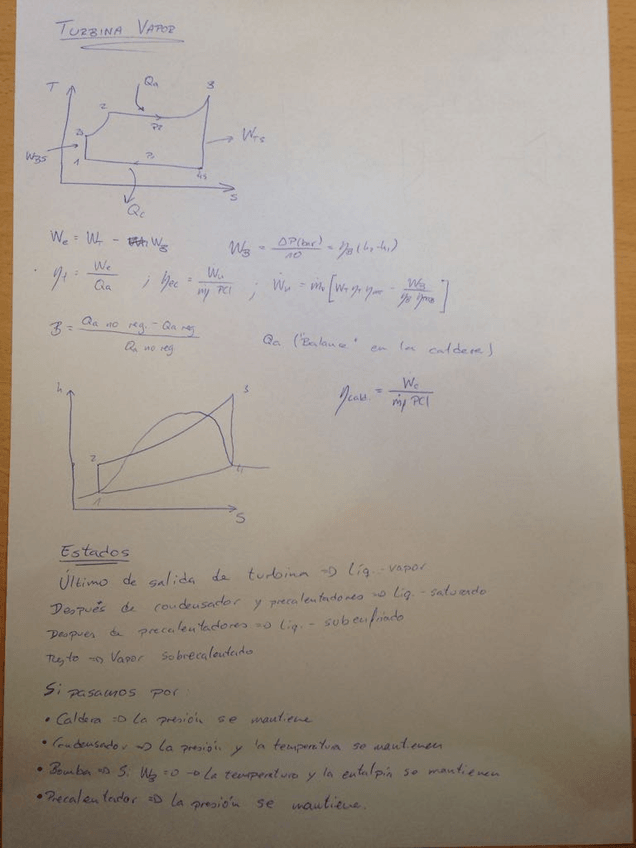 TURBINA VAPOR
T
Qa
3
2
P2
W_TS
W_BS
1
4s
Qc
S
We = W_T - W_B
W_B = ΔP(bar)/10 = η_B (h2-h1)
η_t = We/Qa ; η_ec = Wu/ṁf PCI ;
B = Qa no reg. - Qa reg / Qa no reg
Qa ("Balance" en la caldera)
We/ṁf PCI
h
3
2
1
4
S
Estados
Último de salida de turbina => Líq.-vapor
Después de condensador y precalentadores => Líq.-saturado
Después de precalentadores => Líq.-subenfriado
Resto => Vapor sobrecalentado
Si pasamos por:
• Caldera => La presión se mantiene
• Condensador => La presión y la temperatura se mantienen
• Bomba => Si W_B=0 -> La temperatura y la entalpía se mantienen
• Precalentador => La presión se mantiene.